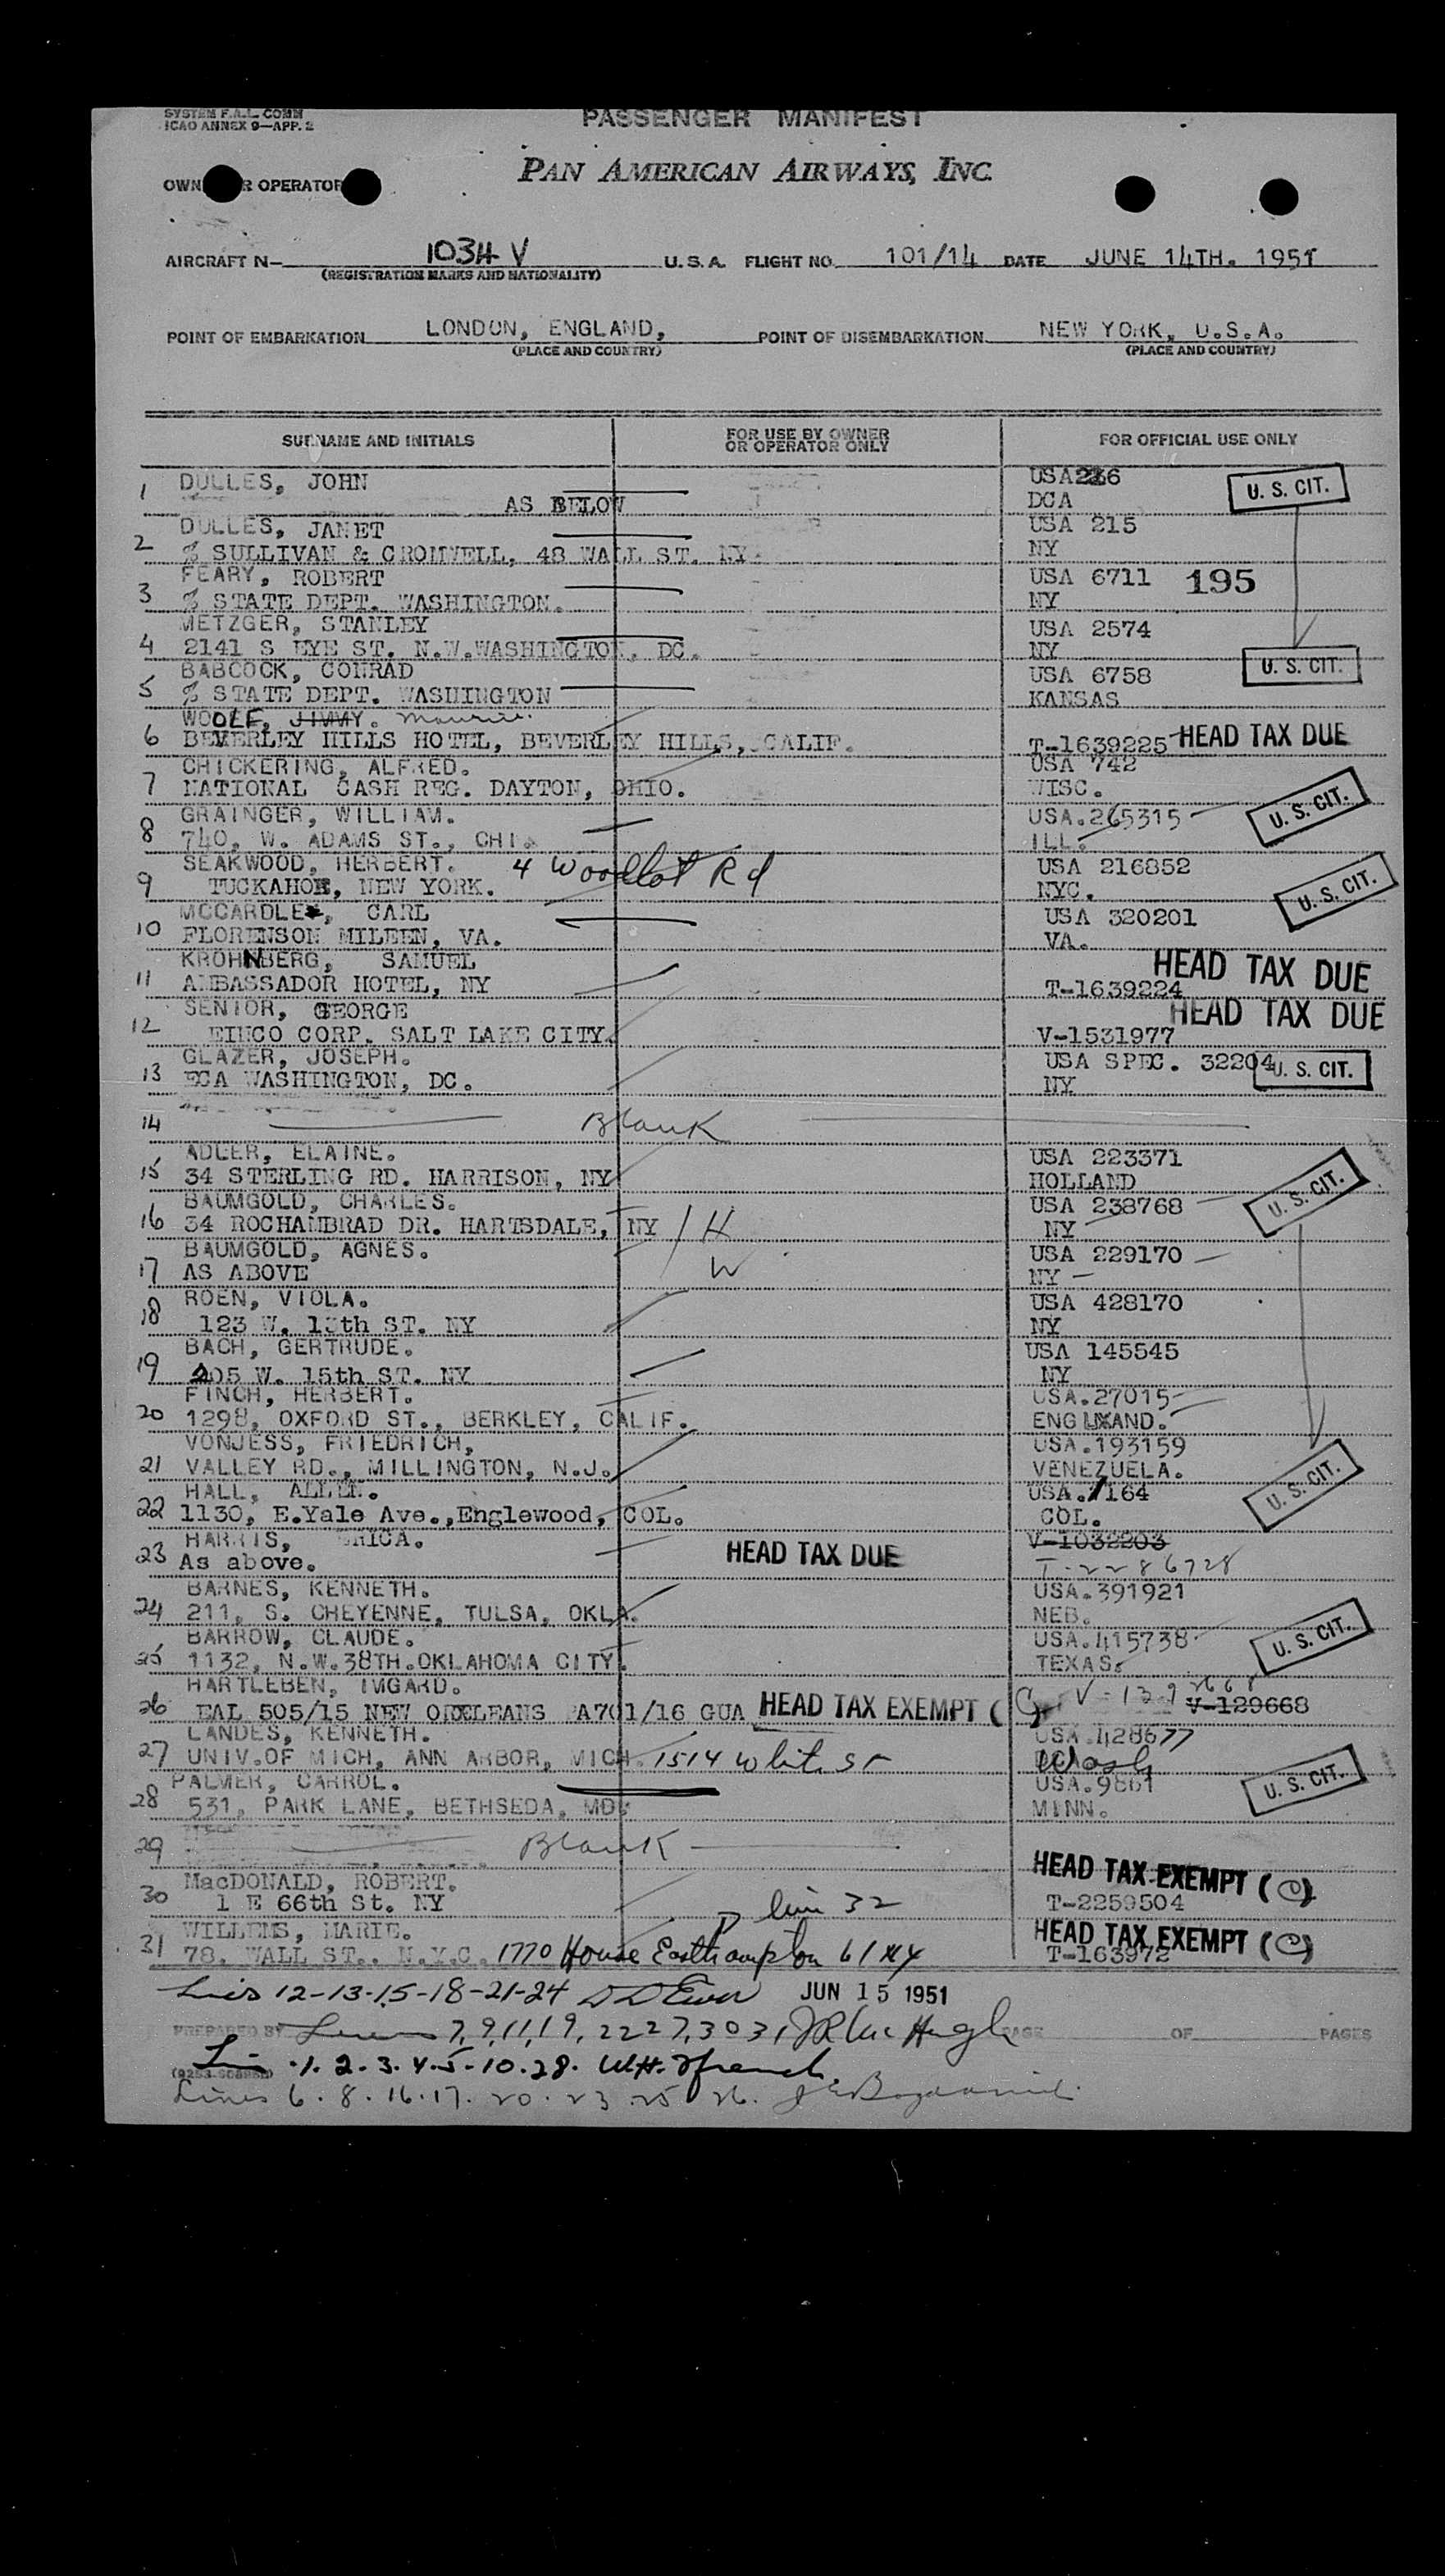 SYSTEM F.A.L. COMM
ICAO ANNEX 9—APP. 2
PASSENGER MANIFEST
PAN AMERICAN AIRWAYS, INC.
OWN R OPERATOR
AIRCRAFT N— 1034 V U. S. A. FLIGHT NO. 101/14 DATE JUNE 14TH. 1951
(REGISTRATION MARKS AND NATIONALITY)
POINT OF EMBARKATION LONDON, ENGLAND, POINT OF DISEMBARKATION NEW YORK, U.S.A.
(PLACE AND COUNTRY) (PLACE AND COUNTRY)
SURNAME AND INITIALS FOR USE BY OWNER OR OPERATOR ONLY FOR OFFICIAL USE ONLY
DULLES, JOHN USA
1 AS BELOW DCA U. S. CIT.
DULLES, JANET USA 215
2 % SULLIVAN & CROMWELL, 48 WALL ST. NY. NY
FEARY, ROBERT USA 6711 195
3 % STATE DEPT. WASHINGTON. NY
METZGER, STANLEY USA 2574
4 2141 S EYE ST. N.W.WASHINGTON, DC. NY
BABCOCK, CONRAD USA 6758 U. S. CIT.
5 % STATE DEPT. WASHINGTON KANSAS
WOOLF, JIMMY. Maurice
6 BEVERLEY HILLS HOTEL, BEVERLEY HILLS, CALIF. T-1639225 HEAD TAX DUE
CHICKERING, ALFRED. USA 742
7 NATIONAL CASH REG. DAYTON, OHIO. WISC.
GRAINGER, WILLIAM. USA.265315 U. S. CIT.
8 740, W. ADAMS ST., CHI. ILL.
SEAKWOOD, HERBERT. 4 Woodlot Rd USA 216852
9 TUCKAHOE, NEW YORK. NYC. U. S. CIT.
MCCARDLE, CARL USA 320201
10 FLORENSON MILEEN, VA. VA.
KROHNBERG, SAMUEL HEAD TAX DUE
11 AMBASSADOR HOTEL, NY T-1639224
SENIOR, GEORGE HEAD TAX DUE
12 EIMCO CORP. SALT LAKE CITY. V-1531977
GLAZER, JOSEPH. USA SPEC. 32204 U. S. CIT.
13 ECA WASHINGTON, DC. NY
14 Blank
ADLER, ELAINE. USA 223371
15 34 STERLING RD. HARRISON, NY HOLLAND
BAUMGOLD, CHARLES. USA 238768 U. S. CIT.
16 34 ROCHAMBRAD DR. HARTSDALE, NY H NY
BAUMGOLD, AGNES. USA 229170
17 AS ABOVE W NY
ROEN, VIOLA. USA 428170
18 123 W. 13th ST. NY NY
BACH, GERTRUDE. USA 145545
19 205 W. 15th ST. NY NY
FINCH, HERBERT. USA.27015
20 1298, OXFORD ST., BERKLEY, CALIF. ENGLAND.
VONJESS, FRIEDRICH, USA.193159
21 VALLEY RD., MILLINGTON, N.J. VENEZUELA.
HALL, ALLEN. USA.7164 U. S. CIT.
22 1130, E.Yale Ave.,Englewood, COL. COL.
HARRIS, ERICA. V-1032203
23 As above. HEAD TAX DUE T-2286728
BARNES, KENNETH. USA.391921
24 211, S. CHEYENNE, TULSA, OKLA. NEB.
BARROW, CLAUDE. USA.415738 U. S. CIT.
25 1132, N.W.38TH.OKLAHOMA CITY. TEXAS.
HARTLEBEN, IMGARD. V-1292668
26 EAL 505/15 NEW ORELEANS PA701/16 GUA HEAD TAX EXEMPT ( V-129668
LANDES, KENNETH. USA.428677
27 UNIV.OF MICH, ANN ARBOR, MICH. 1514 White St Wash
PALMER, CARROL. USA.9861 U. S. CIT.
28 531, PARK LANE, BETHSEDA, MD. MINN.
29 Blank
MacDONALD, ROBERT. HEAD TAX EXEMPT (C)
30 1 E 66th St. NY line 32 T-2259504
WILLEMS, MARIE. HEAD TAX EXEMPT (C)
31 78. WALL ST.. N.Y.C. 1770 House Easthampton T-163972
Lines 12-13-15-18-21-24 JUN 15 1951
PREPARED BY Lines 7,9,11,19,22 27,30 31 PAGE OF PAGES
Lines 1.2.3.4.5-10.28. W.H. French
Lines 6.8.16.17.20.23.25 26.